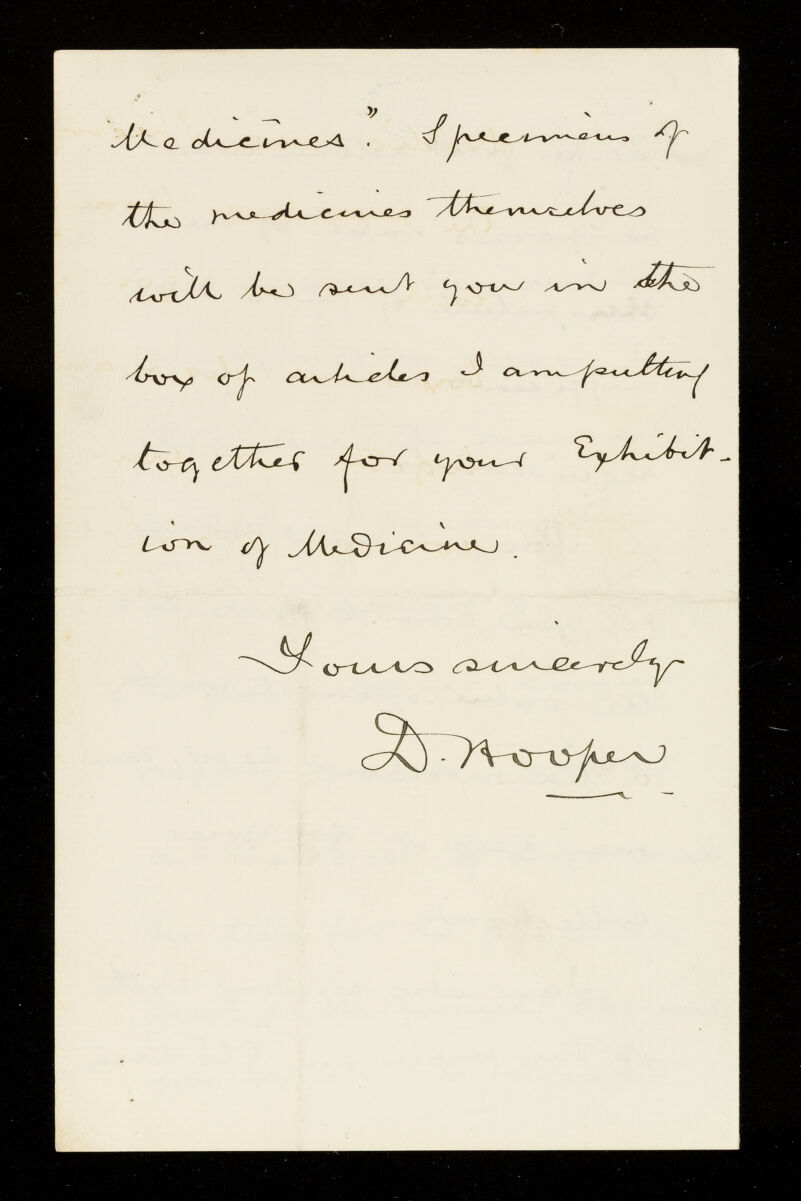 Medicines". Specimens of
the medicines themselves
will be sent you in the
box of articles I am putting
together for your Exhibit-
ion of Medicine.
Yours sincerely
D. Hooper